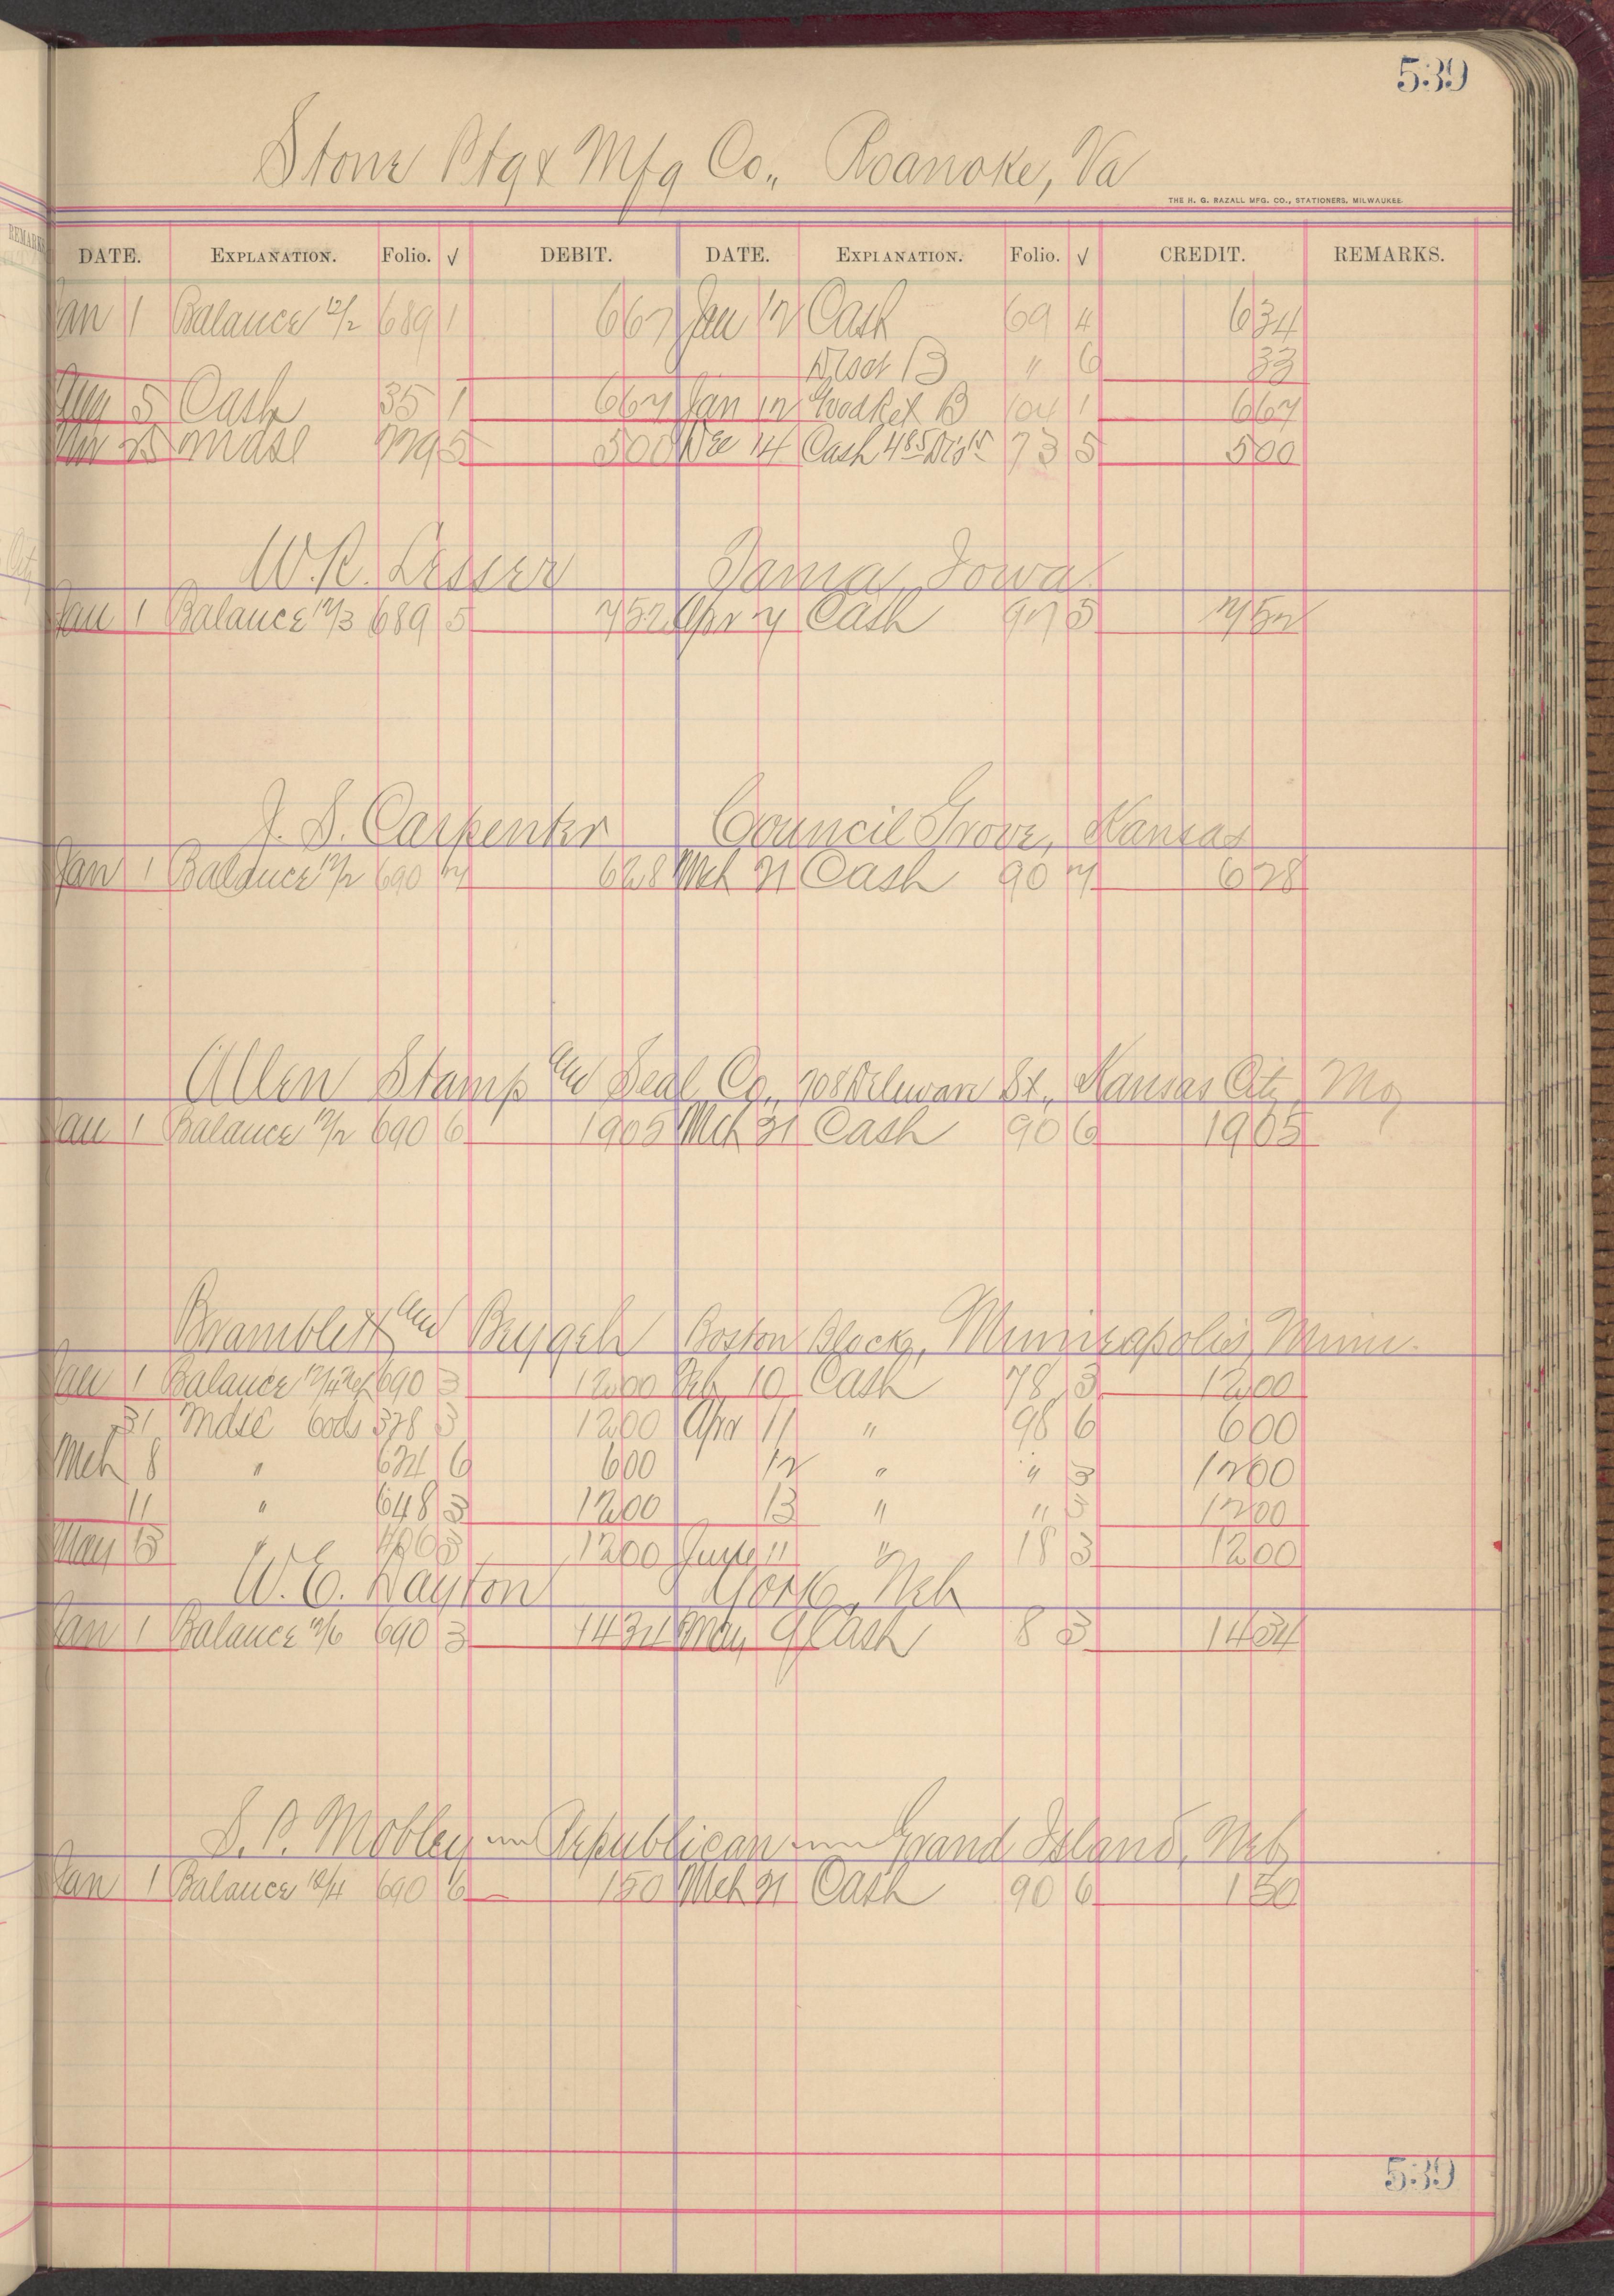 539
Stone Ptg & Mfg Co., Roanoke, Va
THE H. G. RAZALL MFG. CO., STATIONERS, MILWAUKEE.
DATE. EXPLANATION. Folio. √ DEBIT. DATE. EXPLANATION. Folio. √ CREDIT. REMARKS.
Jan 1 Balance 12/2 689 1 667 Jan 12 Cash 69 4 634
Disct B " 6 33
5 Cash 35 1 667 Jan 12 B 104 1 667
25 Mdse 779 5 500 Dec 14 Cash 485 Dis 15 73 5 500
W. R. Lesser Tama, Iowa
Jan 1 Balance 12/3 689 5 752 Apr 7 Cash 97 5 752
J. S. Carpenter Council Grove, Kansas
Jan 1 Balance 12/2 690 7 628 Mch 21 Cash 90 7 628
Allen Stamp and Seal Co., 708 Delaware St., Kansas City, Mo
Jan 1 Balance 12/2 690 6 1905 Mch 21 Cash 90 6 1905
Bramblett and Beygeh Boston Block, Minneapolis, Minn.
Jan 1 Balance 690 3 1200 Feb 10 Cash 78 3 1200
31 Mdse 378 3 1200 Apr 11 " 98 6 600
Mch 8 " 6 600 12 " " 3 1200
11 " 648 3 1200 13 " " 3 1200
May 13 " 3 1200 June 11 " 18 3 1200
W. E. Dayton York, Neb
Jan 1 Balance 12/6 690 3 1434 May 9 Cash 8 3 1434
S. P. Mobley Republican Grand Island, Neb
Jan 1 Balance 12/4 690 6 150 Mch 21 Cash 90 6 150
539